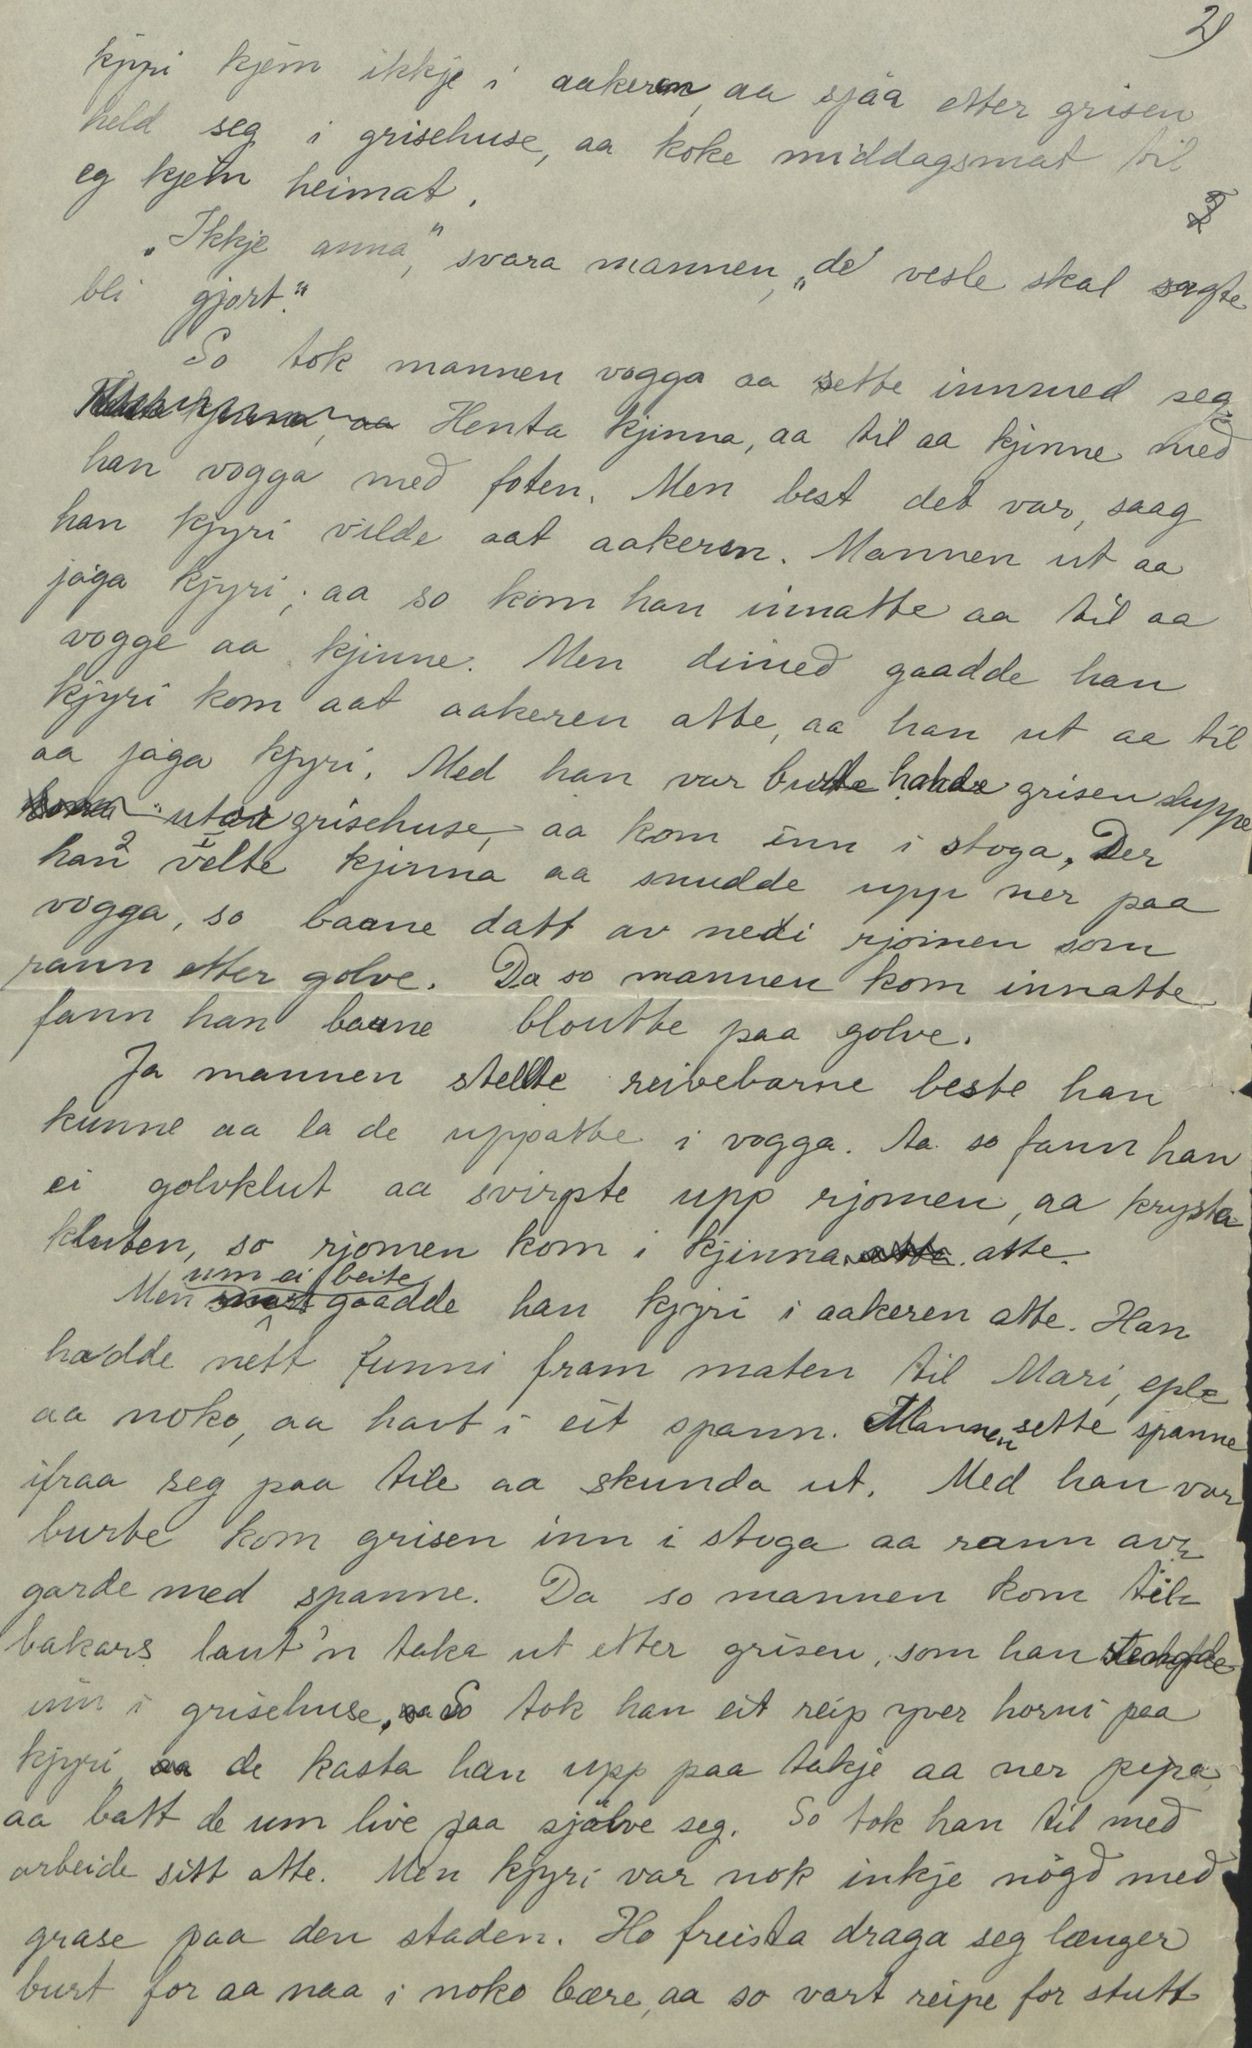 2)
kjyri kjem ikkje i aakeren, aa sjaa etter grisen
held seg i grisehuse, aa koke middagsmat til
eg kjem heimat.
„Ikkje anna," svara mannen, „de vesle skal sagte
bli gjort."
So tok mannen vogga aa sette innmed seg.
aa Henta kjinna, aa til aa kjinne med
han vogga med foten. Men best det var, saag
han kjyri vilde aat aakeren. Mannen ut aa
jaga kjyri; aa so kom han innatte aa til aa
vogge aa kjinne. Men dimed gaadde han
kjyri kom aat aakeren atte, aa han ut aa til
aa jaga kjyri. Med han var burte hadde grisen sluppe
utor grisehuse, aa kom inn i stoga. Der
han 2 velte 1 kjinna aa snudde upp ner paa
vogga, so baane datt av nedi rjomen som
rann etter golve. Da so mannen kom innatte
fann han baane bloutte paa golve.
Ja mannen stellte reivebarne beste han
kunne aa la de uppatte i vogga. Aa so fann han
ei golvklut aa svirpte upp rjomen, aa krysta
kluten, so rjomen kom i kjinna atte atte.
um ei beite
Men snart gaadde han kjyri i aakeren atte. Han
hadde nett funni fram maten til Mari, eple
aa noko, aa havt i eit spann. Mannen sette spanne
ifraa seg paa tile aa skunda ut. Med han var
burte kom grisen inn i stoga aa rann av
garde med spanne. Da so mannen kom til-
bakars laut'n taka ut etter grisen, som han stengde
inn i grisehuse. So tok han eit reip yver horni paa
kjyri, aa de kasta han upp paa takje aa ner pipa,
aa batt de um live paa sjølve seg. So tok han til med
arbeide sitt atte. Men kjyri var nok inkje nögd med
grase paa den staden. Ho freista draga seg længer
burt for aa naa i noko bære, aa so vart reipe for stutt